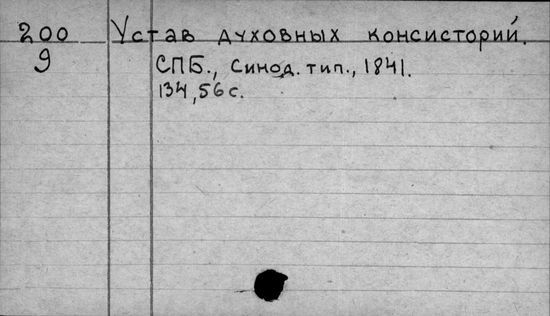 200 Устав духовных консисторий.
9 СПБ., Синод. тип., 1841.
134, 56 с.